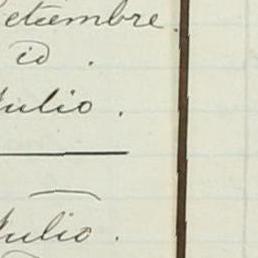 Setiembre.
id.
Julio.
Julio.